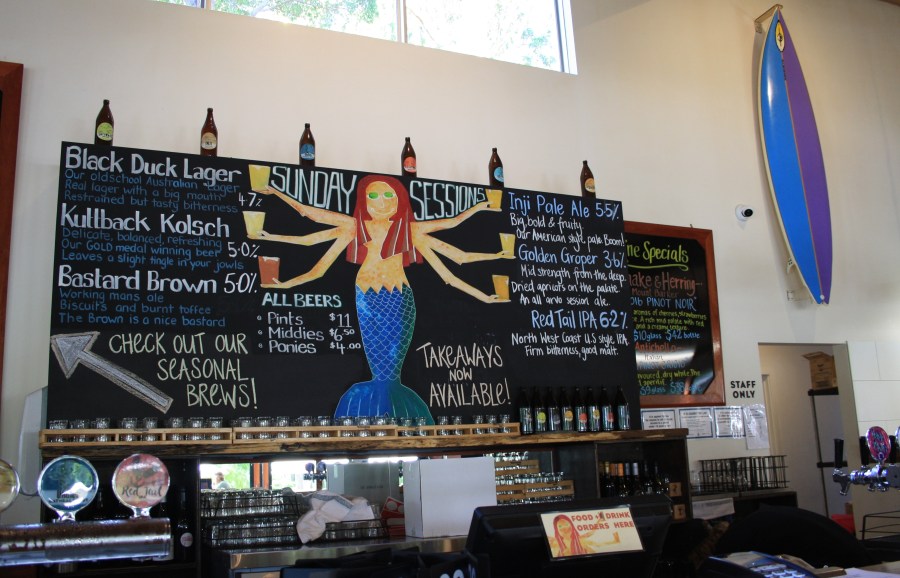 Black Duck Lager
Our oldschool Australian Lager
Real lager with a big mouth
Restrained but tasty bitterness
4.7%
Kullback Kolsch
Delicate, balanced, refreshing
Our GOLD medal winning beer
Leaves a slight tingle in your jowls
5.0%
Bastard Brown 5.0%
Working mans ale
Biscuits and burnt toffee
The Brown is a nice bastard
CHECK OUT OUR
SEASONAL
BREWS!
SUNDAY SESSIONS
ALL BEERS
• Pints $11
• Middies $6.50
• Ponies $4.00
TAKEAWAYS
NOW
AVAILABLE!
Inji Pale Ale 5.5%
Big, bold & fruity.
Our American style pale. Boom!
Golden Groper 3.6%
Mid strength from the deep.
Dried apricots on the palate.
An all arvo session ale.
Red Tail IPA 6.2%
North West Coast U.S style IPA.
Firm bitterness, good malt.
ne Specials
ake & Herring
PINOT NOIR
STAFF
ONLY
Red Tail
FOOD + DRINK
ORDERS HERE